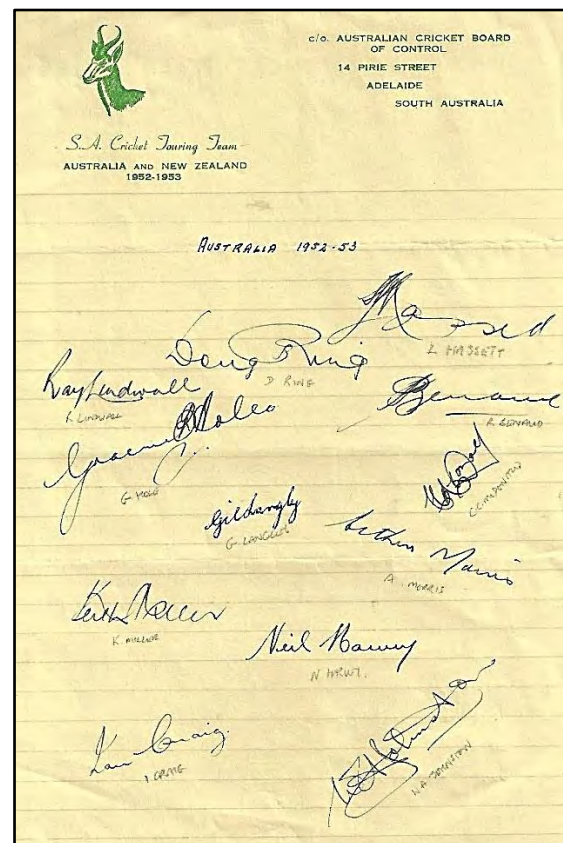 c/o. AUSTRALIAN CRICKET BOARD
OF CONTROL
14 PIRIE STREET
ADELAIDE
SOUTH AUSTRALIA
S.A. Cricket Touring Team
AUSTRALIA AND NEW ZEALAND
1952-1953
AUSTRALIA 1952-53
L HASSETT
Doug Ring
D RING
Ray Lindwall
R LINDWALL
Benaud
R. BENAUD
Graeme Hole
G HOLE
C.C. McDONALD
Gil Langley
G. LANGLEY
Arthur Morris
A. MORRIS
Keith Miller
K. MILLER
Neil Harvey
N HARVEY
Ian Craig
I CRAIG
W A Johnston
W.A. JOHNSTON